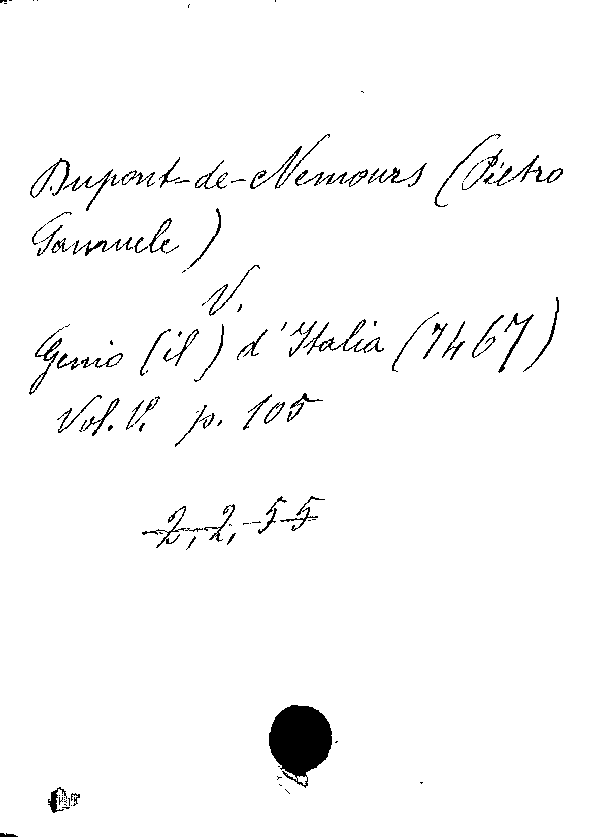 Dupont-de-Nemours (Pietro
Samuele)
V.
Genio (il) d'Italia (7467)
Vol. V. p. 105
2, 2, 55